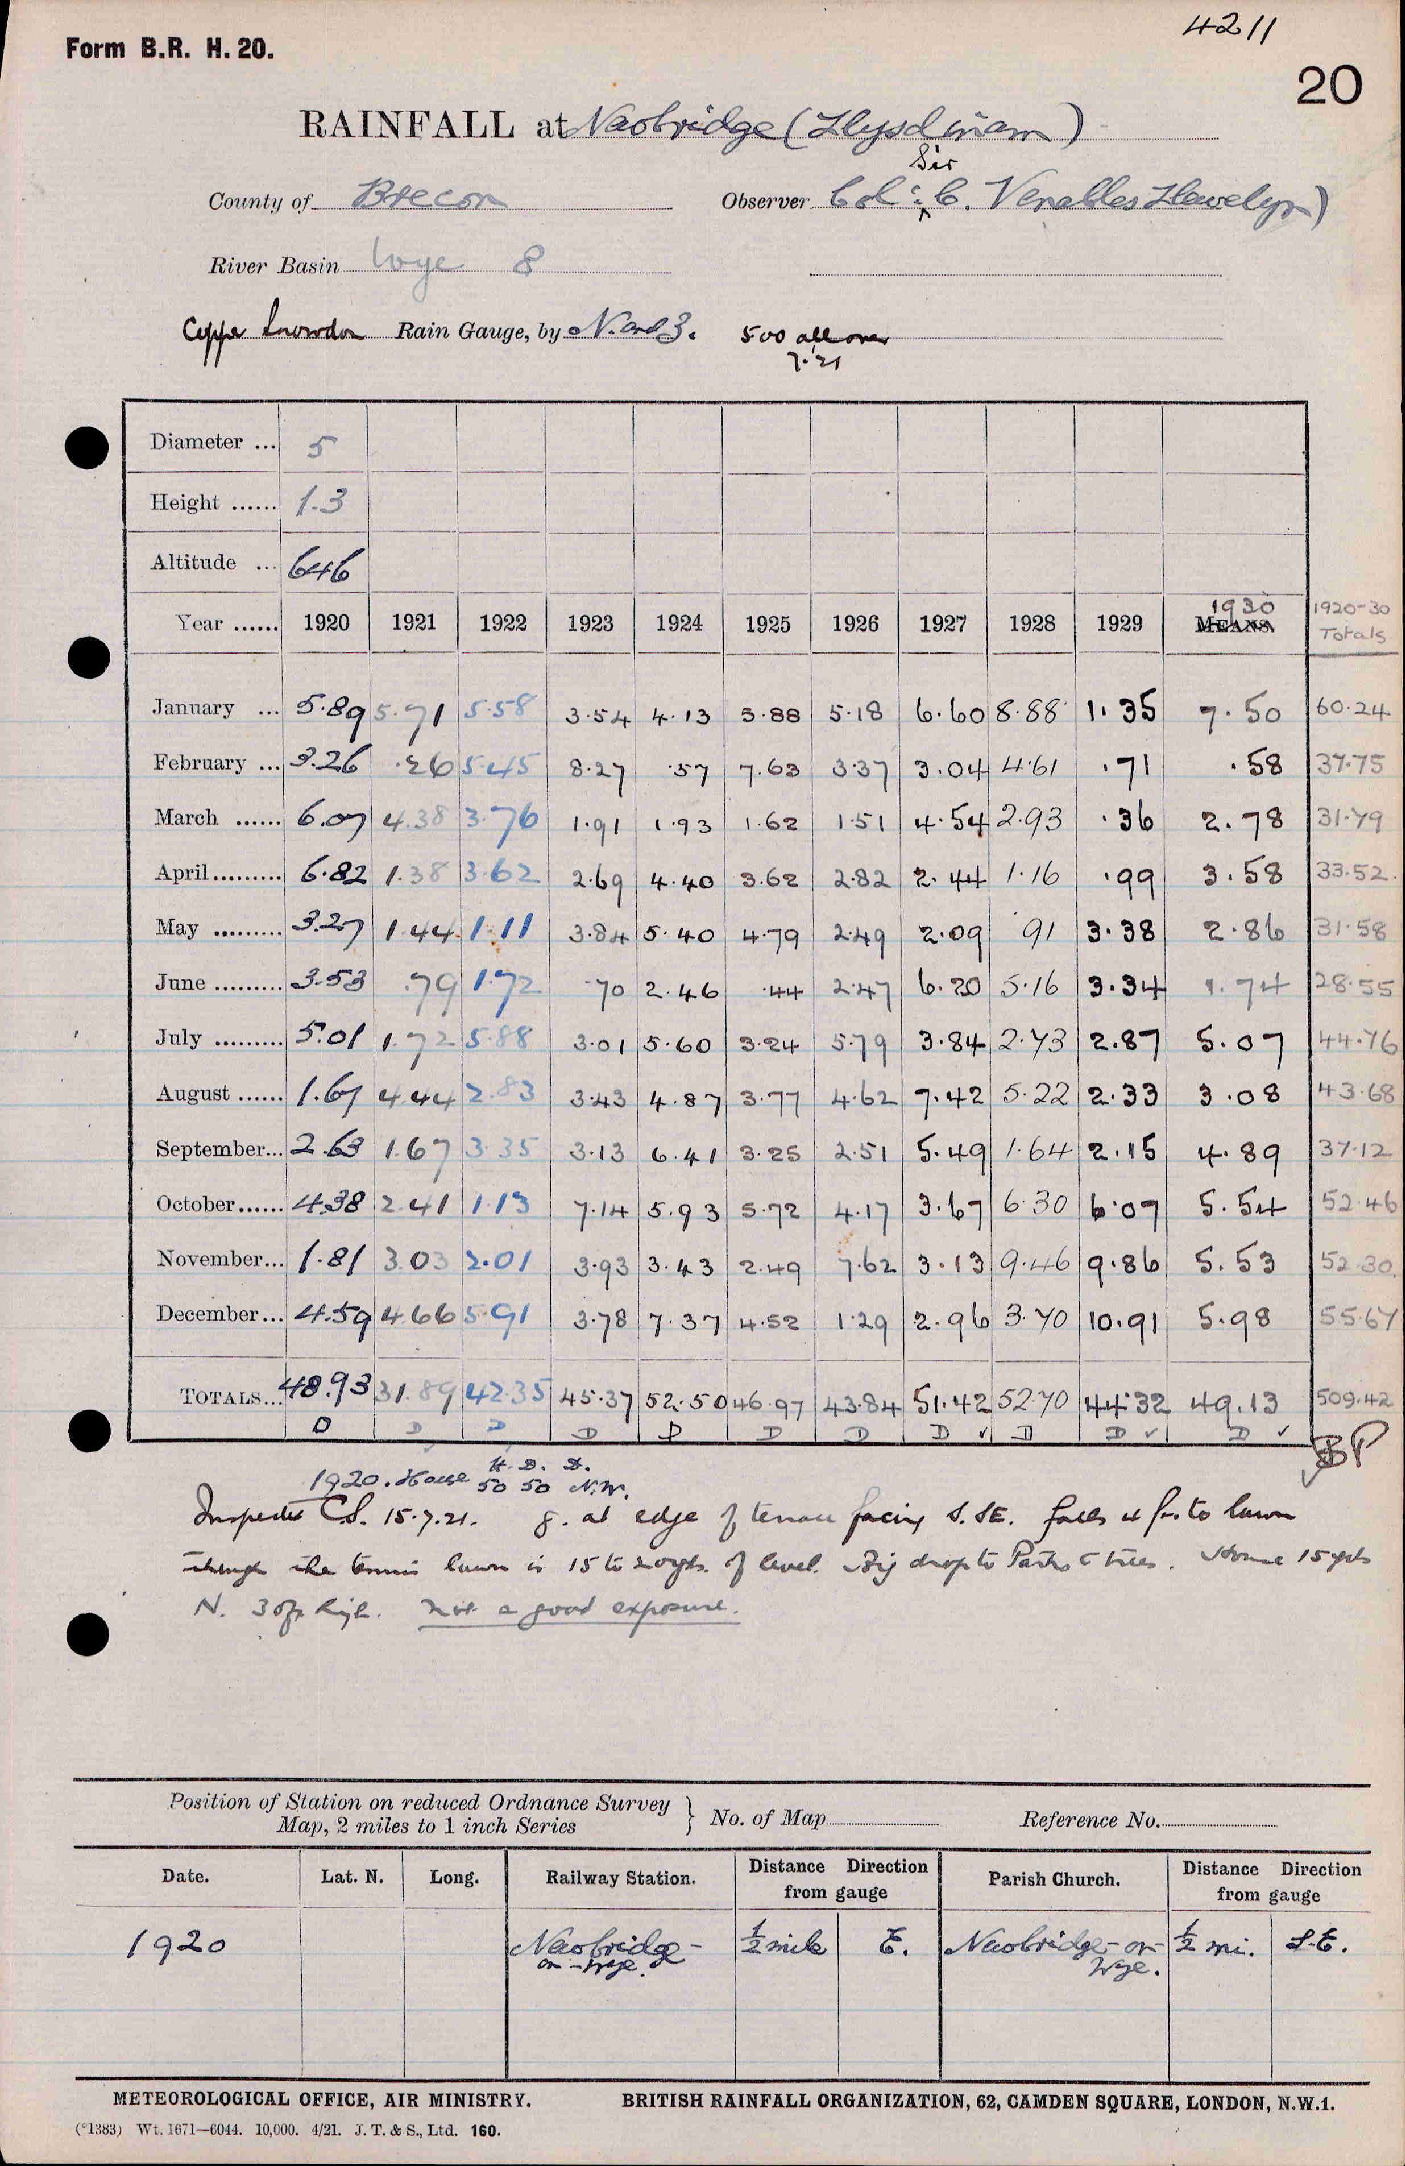 4211
Form B.R. H. 20.
20
RAINFALL at Newbridge (Llysdinam)
Sir
County of Brecon Observer Col: C. Venables Llewelyn)
River Basin Wye 8
Copper Snowdon Rain Gauge, by N. and Z. 500 all over
7.'21
Diameter ... 5
Height ...... 1.3
Altitude ... 646
Year ...... 1920 1921 1922 1923 1924 1925 1926 1927 1928 1929 MEANS 1930 1920-30 Totals
January ... 5.89 5.71 5.58 3.54 4.13 5.88 5.18 6.60 8.88 1.35 7.50 60.24
February ... 3.26 .26 5.45 8.27 .57 7.63 3.37 3.04 4.61 .71 .58 37.75
March ...... 6.07 4.38 3.76 1.91 1.93 1.62 1.51 4.54 2.93 .36 2.78 31.79
April ......... 6.82 1.38 3.62 2.69 4.40 3.62 2.82 2.44 1.16 .99 3.58 33.52
May ......... 3.27 1.44 1.11 3.84 5.40 4.79 2.49 2.09 .91 3.38 2.86 31.58
June ......... 3.53 .79 1.72 .70 2.46 .44 2.47 6.20 5.16 3.34 1.74 28.55
July ......... 5.01 1.72 5.88 3.01 5.60 3.24 5.79 3.84 2.73 2.87 5.07 44.76
August ...... 1.67 4.44 2.83 3.43 4.87 3.77 4.62 7.42 5.22 2.33 3.08 43.68
September... 2.63 1.67 3.35 3.13 6.41 3.25 2.51 5.49 1.64 2.15 4.89 37.12
October...... 4.38 2.41 1.13 7.14 5.93 5.72 4.17 3.67 6.30 6.07 5.54 52.46
November... 1.81 3.03 2.01 3.93 3.43 2.49 7.62 3.13 9.46 9.86 5.53 52.30
December... 4.59 4.66 5.91 3.78 7.37 4.52 1.29 2.96 3.70 10.91 5.98 55.67
TOTALS... 48.93 31.89 42.35 45.37 52.50 46.97 43.84 51.42 52.70 44.32 49.13 509.42
D D D D D D D D ✓ D D ✓ D ✓
BP
H. D. D.
1920. House 50 50 N.W.
Inspected C.S. 15.7.21. g. at edge of terrace facing S.SE. falls 4 ft. to lawn
though the tennis lawn is 15 to 20 yds. of level. Big drop to Park & trees. House 15 yds
N. 30 ft high. Not a good exposure.
Position of Station on reduced Ordnance Survey
Map, 2 miles to 1 inch Series } No. of Map Reference No.
Date. Lat. N. Long. Railway Station. Distance Direction from gauge Parish Church. Distance Direction from gauge
1920 Newbridge-on-Wye. ½ mile E. Newbridge-on-Wye. ½ mi. S.E.
METEOROLOGICAL OFFICE, AIR MINISTRY. BRITISH RAINFALL ORGANIZATION, 62, CAMDEN SQUARE, LONDON, N.W.1.
(*1383) Wt. 1671—6044. 10,000. 4/21. J. T. & S., Ltd. 160.